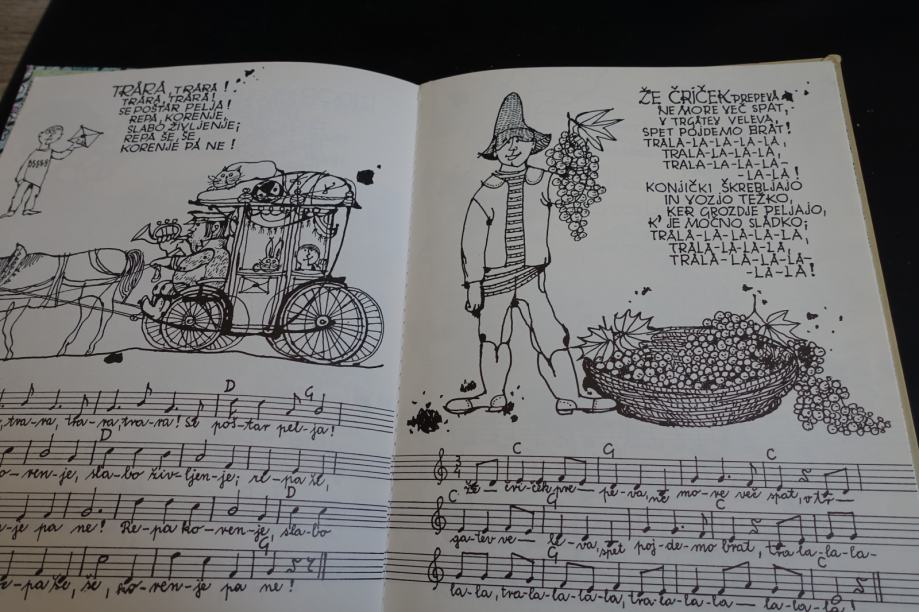 TRARA, TRARA!
TRARA, TRARA!
SE POŠTAR PELJA!
REPA, KORENJE,
SLABO ŽIVLJENJE;
REPA ŠE, ŠE,
KORENJE PA NE!
D G
tra-ra, tra-ra, tra-ra! Se poš-tar pel-ja!
D
ko-ren-je, sla-bo živ-ljen-je; re-pa še,
D
-je pa ne! Re-pa ko-ren-je, sla-bo
G
re-pa še, še, ko-ren-je pa ne!
ŽE ČRIČEK PREPEVA,
NE MORE VEČ SPAT,
V TRGATEV VELEVA,
SPET POJDEMO BRAT!
TRALA-LA-LA-LA,
TRALA-LA-LA-LA,
TRALA-LA-LA-LA-
-LA-LA!
KONJIČKI ŠKREBLJAJO
IN VOZIJO TEŽKO,
KER GROZDJE PELJAJO,
K' JE MOČNO SLADKO;
TRALA-LA-LA-LA-LA,
TRALA-LA-LA-LA,
TRALA-LA-LA-LA-
-LA-LA!
C G C
3 4
Že čri-ček pre-pe-va, ne mo-re več spat, v tr-
C G C
ga-tev ve-le-va, spet poj-de-mo brat, tra-la-la-la-
G C
la-la, tra-la-la-la-la, tra-la-la-la-la-la-la!